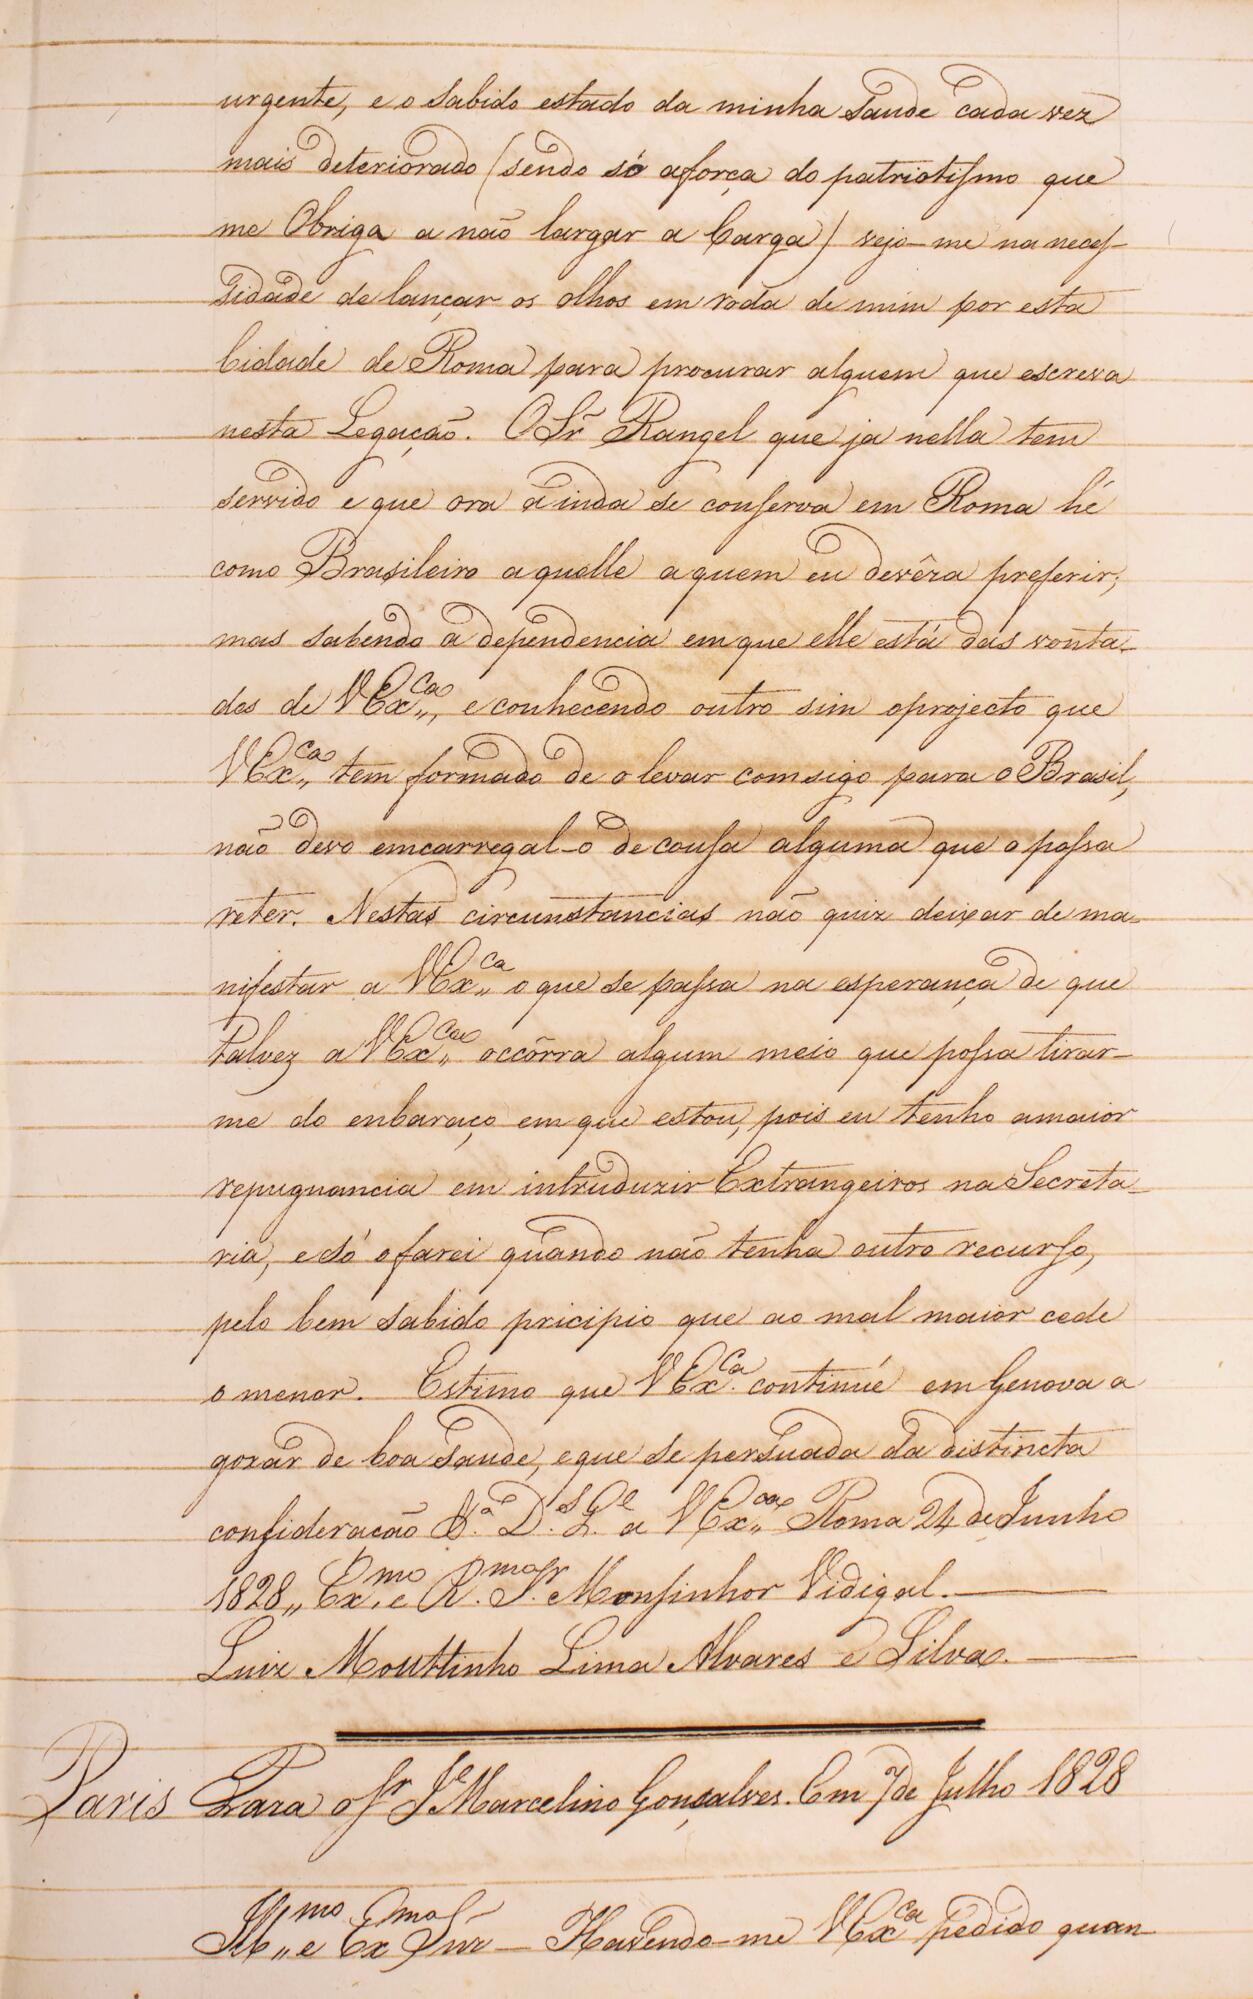 urgente, e o sabido estado da minha saude cada vez
mais deteriorado (sendo só aforça do patriotismo que
me Obriga a não largar a Carga) vejo-me na neces-
sidade de lançar os olhos em roda de mim por esta
Cidade de Roma para procurar alguem que escreva
nesta Legação. O Sr. Rangel que ja nella tem
servido e que ora ainda se conserva em Roma hé
como Brasileiro aquelle aquem eu devêra preferir,
mas sabendo a dependencia em que elle está das vonta-
des de VEx.ca, e conhecendo outro sim oprojecto que
VEx.ca tem formado de o levar comsigo para o Brasil,
não devo emcarregal-o de cousa alguma que o possa
reter. Nestas circunstancias não quiz deixar de ma-
nifestar a VEx.ca o que se passa na esperança de que
talvez a VEx.ca occôrra algum meio que possa tirar-
me do enbaraço em que estou, pois eu tenho amaior
repugnancia em intruduzir Extrangeiros na Secreta-
ria, e só o farei quando não tenha outro recurso,
pelo bem sabido pricipio que ao mal maior cede
o menor. Estimo que VEx.ca continúe em Genova a
gozar de boa saude, eque se persuada da distincta
consideração D.s G.e a VEx.ca Roma 24 de Junho
1828,, Ex.mo e R.mo Sr. Monsinhor Vidigal.
Luiz Mouttinho Lima Alvares e Silva.
Paris Para o Sr. J.e Marcelino Gonçalves. Em 7 de Julho 1828
Ill.mo e Ex.mo Snr - Havendo-me VEx.ca pedido quan-